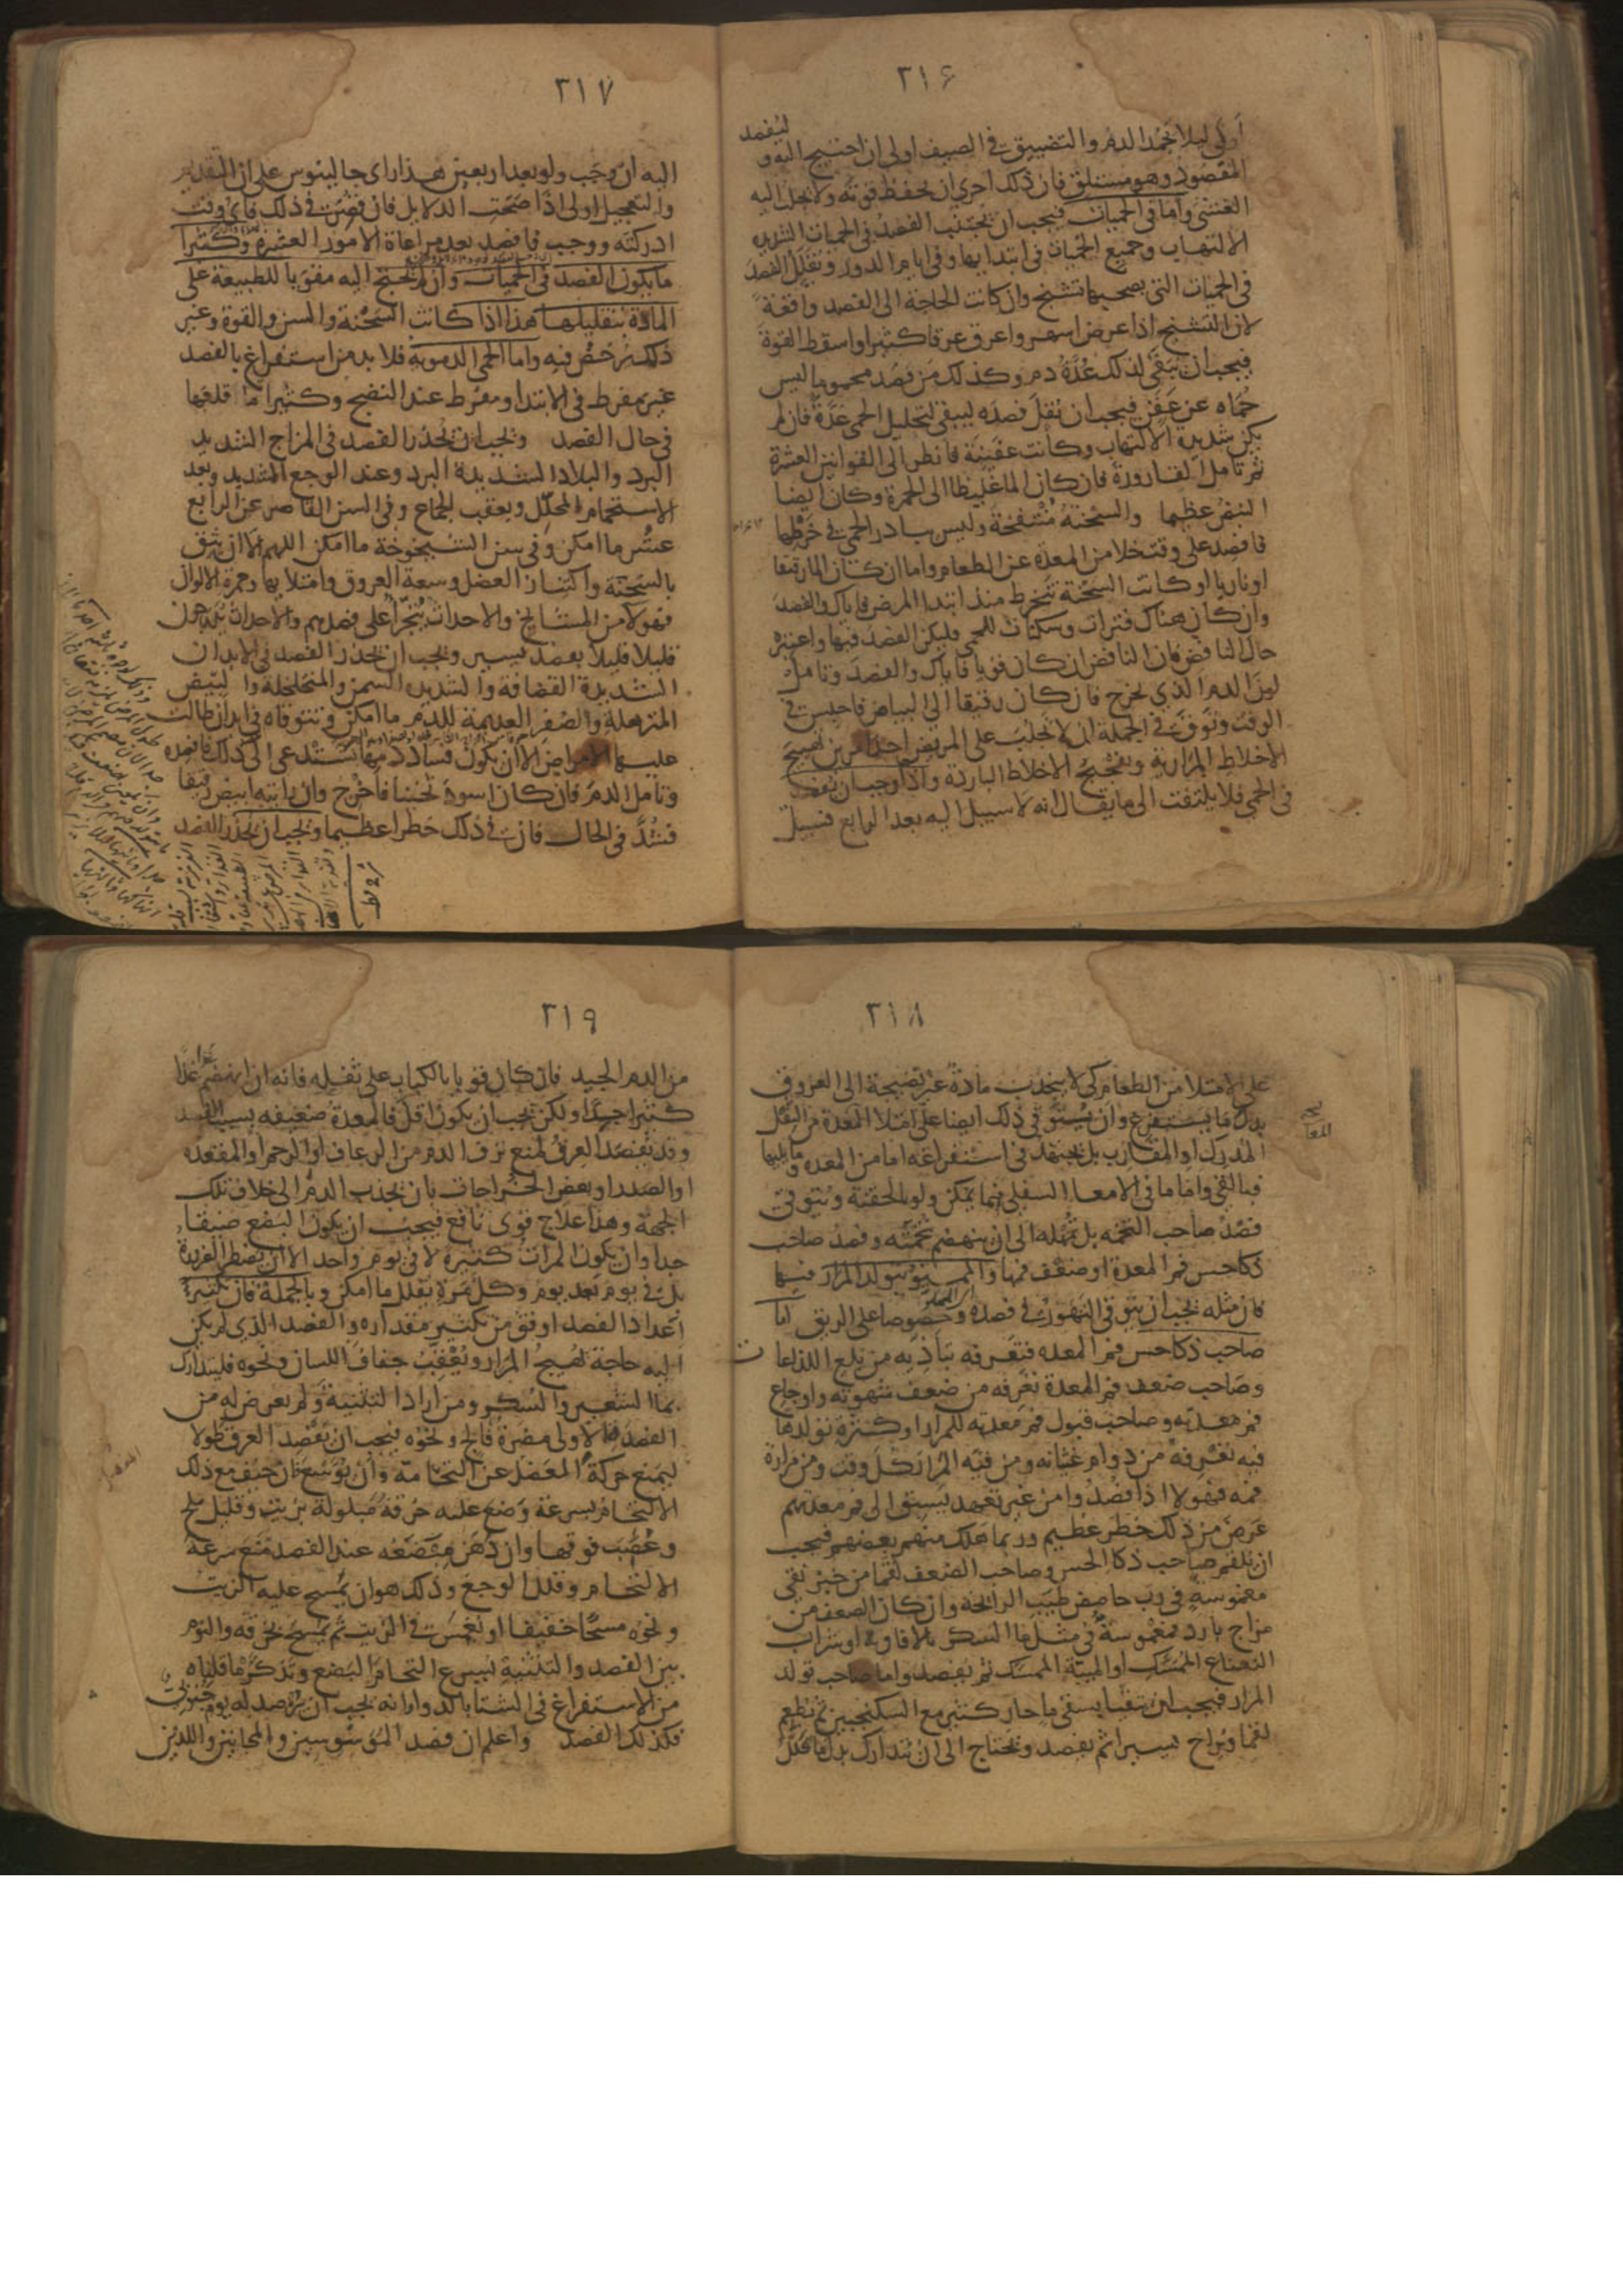 ٢١۶
أولى ليلا يجمد الدم والتضييق في الصيف اولى ان احتيج اليه و
ليفصد
المقصود وهو مستلق فان ذلك احرى ان يحفظ قوته ولا يجلب اليه
الغشي واما في الحميات فيجب ان يجتنب الفصد في الحميات الشديدة
الالتهاب وجميع الحميات في ابتدايها وفي ايام الدور ويقلل الفصد
في الحميات التي يصحبها تشنج وان كانت الحاجة الى الفصد واقعة
لان التشنج اذا عرض اسهر واعرق عرقا كثيرا واسقط القوة
فيجب ان يبقى لذلك عدة دم وكذلك من فصد محموما ليس
حماه عن عفن فيجب ان يقل فصده ليبقى لتحليل الحمى عدة فان لم
يكن شديدة الالتهاب وكانت عفنية فانظر الى القوانين العشرة
ثم تامل القارورة فان كان الما غليظا الى الحمرة وكان ايضا
النبض عظيما والسحنة منتفخة وليس يبادر الحمى في حركتها
فافصد على وقت خلا من المعدة عن الطعام واما ان كان الما رقيقا
او ناريا او كانت السحنة تنخرط منذ ابتدا المرض فاياك والفصد
وان كان هناك فترات وسكنات للحمى فليكن الفصد فيها واعتبر
حال النافض فان النافض ان كان قويا فاياك والفصد وتامل
لون الدم الذي يخرج فان كان رقيقا الى البياض فاحبس في
الوقت وتوق في الجملة ان لا تجلب على المريض احد امرين تهييج
الاخلاط المرارية وتفجيج الاخلاط الباردة واذا وجب ان يفصد
في الحمى فلا يلتفت الى ما يقال انه لا سبيل اليه بعد الرابع فسبيل
٢١٧
اليه ان وجب ولو بعد اربعين هذا راى جالينوس على ان التقديم
والتعجيل اولى اذا صحت الدلايل فان قصرت في ذلك فاي وقت
ادركته ووجب فافصد بعد مراعاة الامور العشرة وكثيرا
ما يكون الفصد في الحميات وان لم يحتج اليه مقويا للطبيعة على
المادة بتقليلها هذا اذا كانت السحنة والسن والقوة وغير
ذلك يرخص فيه واما الحمى الدموية فلا بد من استفراغ بالفصد
غير مفرط في الابتدا ومفرط عند النضج وكثيرا ما اقلعها
في حال الفصد ويجب ان يحذر الفصد في المزاج الشديد
البرد والبلاد الشديدة البرد وعند الوجع الشديد وبعد
الاستحمام المحلل وبعقب الجماع وفي السن القاصر عن الرابع
عشر ما امكن وفي سن الشيخوخة ما امكن اللهم الا ان يثق
بالسحنة واكتناز العضل وسعة العروق وامتلايها وحمرة الالوان
فهولا من المشايخ والاحداث يتجرأ على فصدهم والاحداث يدرجون
قليلا قليلا بفصد يسير ويجب ان يحذر الفصد في الابدان
الشديدة القضافة والشديدة السمن والمتخلخلة والبيض
المترهلة والصفر العديمة للدم ما امكن وتتوقاه في ابدان طالت
عليها الامراض الا ان يكون فساد دمها يستدعى الى ذلك فافصده
وتامل الدم فان كان اسود ثخينا فاخرج وان رايته ابيض رقيقا
فشد في الحال فان في ذلك خطرا عظيما ويجب ان يحذر الفصد
٢١٨
على الامتلا من الطعام كي لا ينجذب مادة غير نضيجة الى العروق
بدل ما يستفرغ وان يتوقى في ذلك ايضا على امتلا المعدة من الثقل
المدرك او المقارب بل يجتهد في استفراغه اما من المعدة وما يليها
فبالقي واما ما في الامعا السفلى فبما يمكن ولو بالحقنة وتتوقى
فصد صاحب التخمة بل تمهله الى ان ينهضم تخمته وفصد صاحب
ذكا حس فم المعدة او ضعف فمها والمـمنو بتولد المرار فيها
فان مثله يجب ان يتوقى التهور في فصده وخصوصا على الريق اما
صاحب ذكا حس فم المعدة فتعرفه بتاذيه من بلع اللذاعات
وصاحب ضعف فم المعدة تعرفه من ضعف شهوته واوجاع
فم معدته وصاحب قبول فم معدته للمرار او كثرة تولدها
فيه تعرفه من دوام غثيانه ومن قيه المرار كل وقت ومن مرارة
فمه فهولا اذا فصدوا من غير تعهد يسبق الى فم معدتهم
عرض من ذلك خطر عظيم وربما هلك منهم بعضهم فيجب
ان يلقم صاحب ذكا الحس وصاحب الضعف لقما من خبز نقي
مغموسة في رب حامض طيب الرائحة وان كان الضعف من
مزاج بارد فمغموسة في مثل ما السكر بالافاويه او شراب
النعناع الممسك او الميبة الممسك ثم يفصد واما صاحب تولد
المرار فيجب ان يتقيا بسقي ما حار كثير مع السكنجبين ثم يطعم
لقما ويراح يسيرا ثم يفصد ويحتاج الى ان يتدارك بدل ما تحلل
٢١٩
من الدم الجيد فان كان قويا بالكباب على ثقيله فانه ان انهضم غذا
كثيرا جيدا ولكن يجب ان يكون اقل فالمعدة ضعيفه بسبب الفصد
وقد يفصد العرق لمنع نزف الدم من الرعاف او الرحم او المقعدة
او الصدر او بعض الخراجات بان يجذب الدم الى خلاف تلك
الجهة وهذا علاج قوي نافع فيجب ان يكون البضع ضيقا
جدا وان يكون المرات كثيرة لا في يوم واحد الا ان يضطر الضرورة
بل في يوم بعد يوم وكل مرة يقلل ما امكن وبالجملة فان تكثير
اعداد الفصد اوفق من تكثير مقداره والفصد الذي لم يكن
اليه حاجة تهييج المرار ويعقب جفاف اللسان ونحوه فليتدارك
بما الشعير والسكر ومن اراد التثنية ولم يعرض له من
الفصد الاولى مضرة فالج ونحوه فيجب ان يفصد العرق طولا
ليمنع حركة العضل عن التحامه وان يوسع فان خيف مع ذلك
الالتحام بسرعة وضع عليه خرقة مبلولة بزيت وقليل ملح
وعصب فوقها وان دهن مبضعه عند الفصد منع سرعة
الالتحام وقلل الوجع وذلك هو ان يمسح عليه الزيت
ونحوه مسحا خفيفا او يغمس في الزيت ثم يمسح بخرقة والنوم
بين الفصد والتثنية يسرع التحام البضع وتذكر ما قلناه
من الاستفراغ في الشتا بالدوا انه يجب ان يرصد له يوم جنوبي
فكذلك الفصد واعلم ان فصد الموسوسين والمجانين واللذين